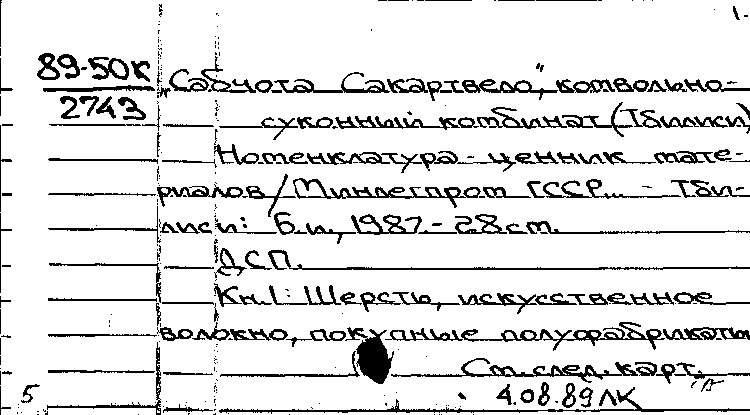 1.
89-50к
2743
„Сабчота Сакартвело", котвольно-
суконный комбинат (Тбилиси)
Номенклатура-ценник мате-
риалов/Минлегпром ГССР... - Тби-
лиси: Б.и., 1987.- 28 ст.
ДСП.
Кн.1: Шерсть, искусственное
волокно, покупные полуфабрикаты
См. след. карт.
5
4.08.89 ЛК